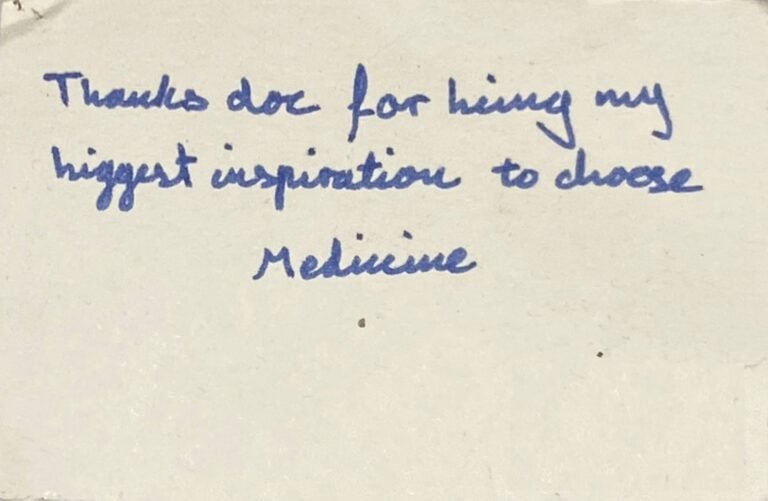 Thanks doc for being my
biggest inspiration to choose
Medicine